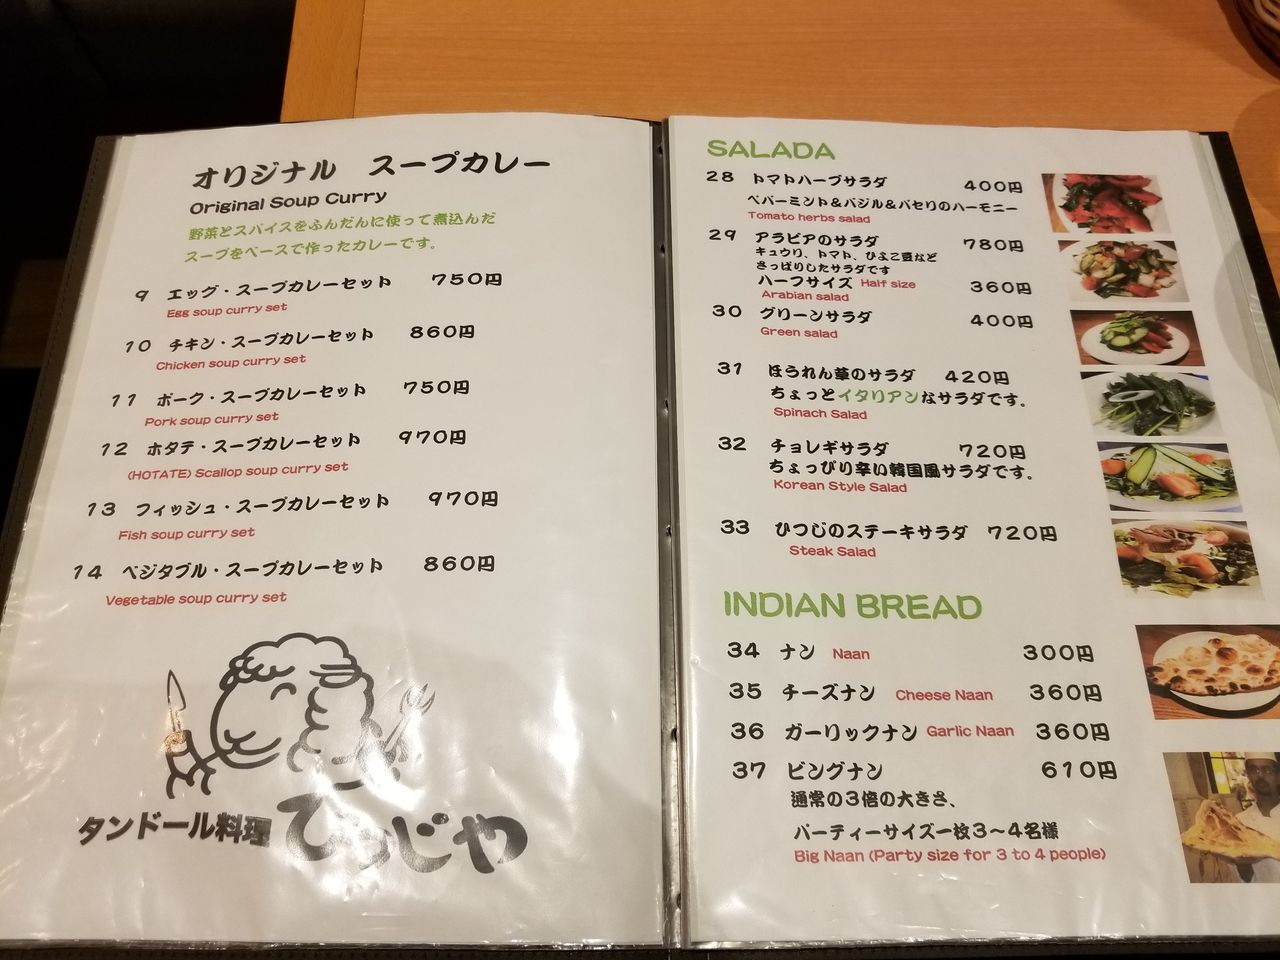 オリジナル　スープカレー
Original Soup Curry
野菜とスパイスをふんだんに使って煮込んだ
スープをベースで作ったカレーです。
9 エッグ・スープカレーセット 750円
Egg soup curry set
10 チキン・スープカレーセット 860円
Chicken soup curry set
11 ポーク・スープカレーセット 750円
Pork soup curry set
12 ホタテ・スープカレーセット 970円
(HOTATE) Scallop soup curry set
13 フィッシュ・スープカレーセット 970円
Fish soup curry set
14 ベジタブル・スープカレーセット 860円
Vegetable soup curry set
タンドール料理 ひつじや
SALADA
28 トマトハーブサラダ 400円
ペパーミント&バジル&パセリのハーモニー
Tomato herbs salad
29 アラビアのサラダ 780円
キュウリ、トマト、ひよこ豆など
さっぱりしたサラダです
ハーフサイズ Half size 360円
Arabian salad
30 グリーンサラダ 400円
Green salad
31 ほうれん草のサラダ 420円
ちょっとイタリアンなサラダです。
Spinach Salad
32 チョレギサラダ 720円
ちょっぴり辛い韓国風サラダです。
Korean Style Salad
33 ひつじのステーキサラダ 720円
Steak Salad
INDIAN BREAD
34 ナン Naan 300円
35 チーズナン Cheese Naan 360円
36 ガーリックナン Garlic Naan 360円
37 ビングナン 610円
通常の3倍の大きさ、
パーティーサイズ一枚3〜4名様
Big Naan (Party size for 3 to 4 people)